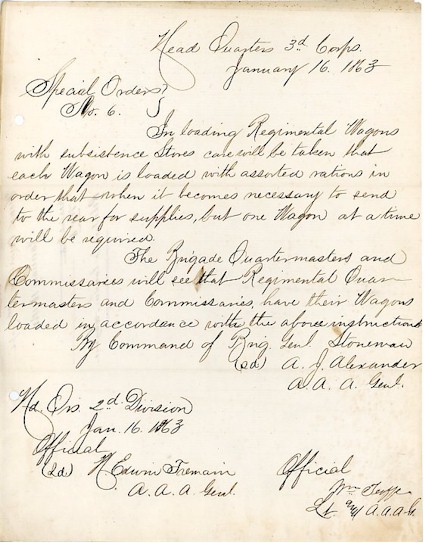 Head Quarters 3d Corps.
January 16. 1863
Special Orders }
No. 6. }
In loading Regimental Wagons
with subsistence Stores care will be taken that
each Wagon is loaded with assorted rations in
order that when it becomes necessary to send
to the rear for supplies, but one Wagon at a time
will be required.
The Brigade Quartermasters and
Commissaries will see that Regimental Quar
termasters and Commissaries, have their Wagons
loaded in accordance with the above instructions
By Command of Brig. Genl Stoneman
(sd) A. J. Alexander
A. A. A Genl.
Hd. Qrs. 2d Division
Jan. 16. 1863
Official
(Sd) H Edwin Tremain
A. A. A. Genl.
Official
Lt and A.A.A.G.